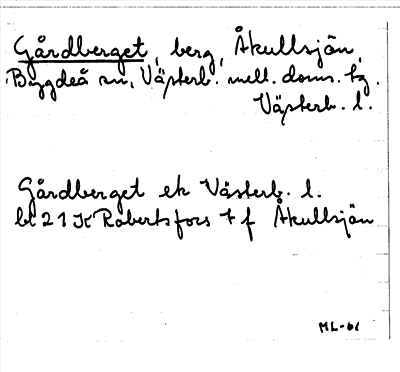 Gårdberget, berg, Åkullsjön,
Bygdeå sn, Västerb. mell. doms. tg.
Västerb. l.
Gårdberget ek Västerb. l.
bl 21 K Robertsfors t f Åkullsjön
ML-61